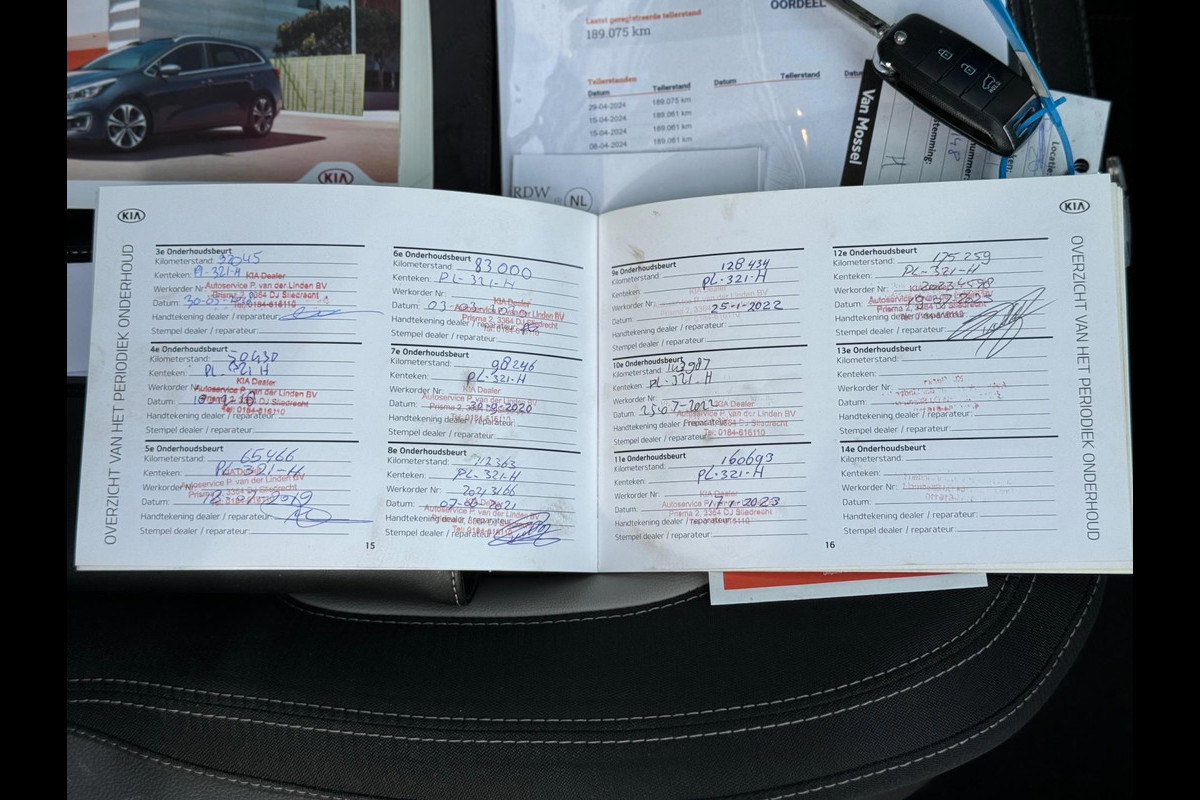 KIA
OORDEEL
Laatst geregistreerde tellerstand
189.075 km
Tellerstanden
Datum Tellerstand Datum Tellerstand
29-04-2024 189.075 km
15-04-2024 189.061 km
15-04-2024 189.061 km
08-04-2024 189.061 km
RDW NL
Van Mossel
KIA
OVERZICHT VAN HET PERIODIEK ONDERHOUD
3e Onderhoudsbeurt
Kilometerstand: 32045
Kenteken: Pl-321-H
KIA Dealer
Werkorder Nr: Autoservice P. van der Linden BV
Prisma 2, 3364 DJ Sliedrecht
Datum:
Tel: 0184-616110
Handtekening dealer / reparateur:
Stempel dealer / reparateur:
4e Onderhoudsbeurt
Kilometerstand:
Kenteken: PL-321 H
KIA Dealer
Werkorder Nr: Autoservice P. van der Linden BV
Prisma 2, 3364 DJ Sliedrecht
Datum:
Tel: 0184-616110
Handtekening dealer / reparateur:
Stempel dealer / reparateur:
5e Onderhoudsbeurt
Kilometerstand: 65466
Kenteken: PL-321-H
Werkorder Nr: Autoservice P. van der Linden BV
Prisma 2, 3364 DJ Sliedrecht
Datum:
Handtekening dealer / reparateur:
Stempel dealer / reparateur:
15
6e Onderhoudsbeurt
Kilometerstand: 83000
Kenteken: PL-321-H
Werkorder Nr:
KIA Dealer
Datum: Autoservice P. van der Linden BV
Prisma 2, 3364 DJ Sliedrecht
Handtekening dealer / reparateur:
Stempel dealer / reparateur:
7e Onderhoudsbeurt
Kilometerstand: 98246
Kenteken: PL-321-H
Werkorder Nr:
Autoservice P. van der Linden BV
Datum:
Handtekening dealer / reparateur:
Stempel dealer / reparateur:
8e Onderhoudsbeurt
Kilometerstand: 112363
Kenteken: PL-321-H
Werkorder Nr:
KIA Dealer
Datum:
Autoservice P. van der Linden BV
Handtekening dealer / reparateur:
Stempel dealer / reparateur:
KIA
9e Onderhoudsbeurt
Kilometerstand: 128434
Kenteken: PL-321-H
Werkorder Nr:
Datum: 25-1-2022
Handtekening dealer / reparateur:
Stempel dealer / reparateur:
10e Onderhoudsbeurt
Kilometerstand:
Kenteken: PL-321 H
Werkorder Nr:
KIA Dealer
Datum: 25-07-2022
Autoservice P. van der Linden BV
Prisma 2, 3364 DJ Sliedrecht
Handtekening dealer / reparateur:
Tel: 0184-616110
Stempel dealer / reparateur:
11e Onderhoudsbeurt
Kilometerstand: 160693
Kenteken: PL-321-H
Werkorder Nr:
KIA Dealer
Datum: 17-1-2023
Prisma 2, 3364 DJ Sliedrecht
Handtekening dealer / reparateur:
Tel: 0184-616110
Stempel dealer / reparateur:
16
12e Onderhoudsbeurt
Kilometerstand: 175259
Kenteken: PL-321-H
Werkorder Nr:
Datum:
Handtekening dealer / reparateur:
Stempel dealer / reparateur:
13e Onderhoudsbeurt
Kilometerstand:
Kenteken:
Werkorder Nr:
Datum:
Handtekening dealer / reparateur:
Stempel dealer / reparateur:
14e Onderhoudsbeurt
Kilometerstand:
Kenteken:
Werkorder Nr:
Datum:
Handtekening dealer / reparateur:
Stempel dealer / reparateur:
OVERZICHT VAN HET PERIODIEK ONDERHOUD